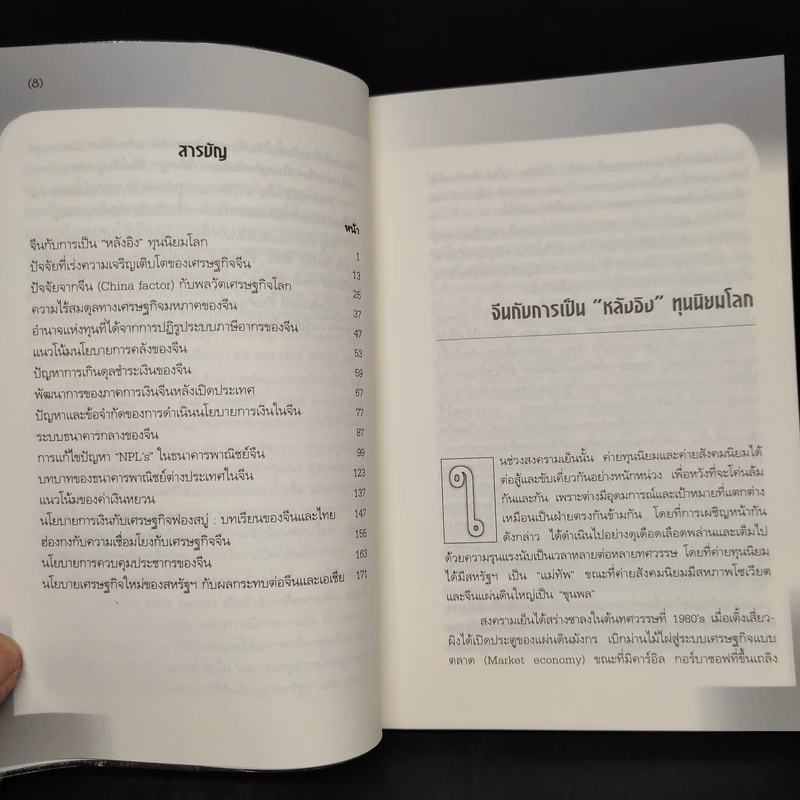 (8)
สารบัญ
หน้า
จีนกับการเป็น "หลังอิง" ทุนนิยมโลก 1
ปัจจัยที่เร่งความเจริญเติบโตของเศรษฐกิจจีน 13
ปัจจัยจากจีน (China factor) กับพลวัตเศรษฐกิจโลก 25
ความไร้สมดุลทางเศรษฐกิจมหภาคของจีน 37
อำนาจแห่งทุนที่ได้จากการปฏิรูประบบภาษีอากรของจีน 47
แนวโน้มนโยบายการคลังของจีน 53
ปัญหาการเกินดุลชำระเงินของจีน 59
พัฒนาการของภาคการเงินจีนหลังเปิดประเทศ 67
ปัญหาและข้อจำกัดของการดำเนินนโยบายการเงินในจีน 77
ระบบธนาคารกลางของจีน 87
การแก้ไขปัญหา "NPL's" ในธนาคารพาณิชย์จีน 99
บทบาทของธนาคารพาณิชย์ต่างประเทศในจีน 123
แนวโน้มของค่าเงินหยวน 137
นโยบายการเงินกับเศรษฐกิจฟองสบู่ : บทเรียนของจีนและไทย 147
ฮ่องกงกับความเชื่อมโยงกับเศรษฐกิจจีน 155
นโยบายการควบคุมประชากรของจีน 163
นโยบายเศรษฐกิจใหม่ของสหรัฐฯ กับผลกระทบต่อจีนและเอเชีย 171
จีนกับการเป็น "หลังอิง" ทุนนิยมโลก
ในช่วงสงครามเย็นนั้น ค่ายทุนนิยมและค่ายสังคมนิยมได้
ต่อสู้และขับเคี่ยวกันอย่างหนักหน่วง เพื่อหวังที่จะโค่นล้ม
กันและกัน เพราะต่างมีอุดมการณ์และเป้าหมายที่แตกต่าง
เหมือนเป็นฝ่ายตรงกันข้ามกัน โดยที่การเผชิญหน้ากัน
ดังกล่าว ได้ดำเนินไปอย่างดุเดือดเลือดพล่านและเต็มไป
ด้วยความรุนแรงนับเป็นเวลาหลายต่อหลายทศวรรษ โดยที่ค่ายทุนนิยม
ได้มีสหรัฐฯ เป็น "แม่ทัพ" ขณะที่ค่ายสังคมนิยมมีสหภาพโซเวียต
และจีนแผ่นดินใหญ่เป็น "ขุนพล"
สงครามเย็นได้สร่างซาลงในต้นทศวรรษที่ 1980's เมื่อเติ้งเสี่ยว-
ผิงได้เปิดประตูของแผ่นดินมังกร เบิกม่านไม้ไผ่สู่ระบบเศรษฐกิจแบบ
ตลาด (Market economy) ขณะที่มิคาร์อิล กอร์บาชอฟที่ขึ้นเถลิง